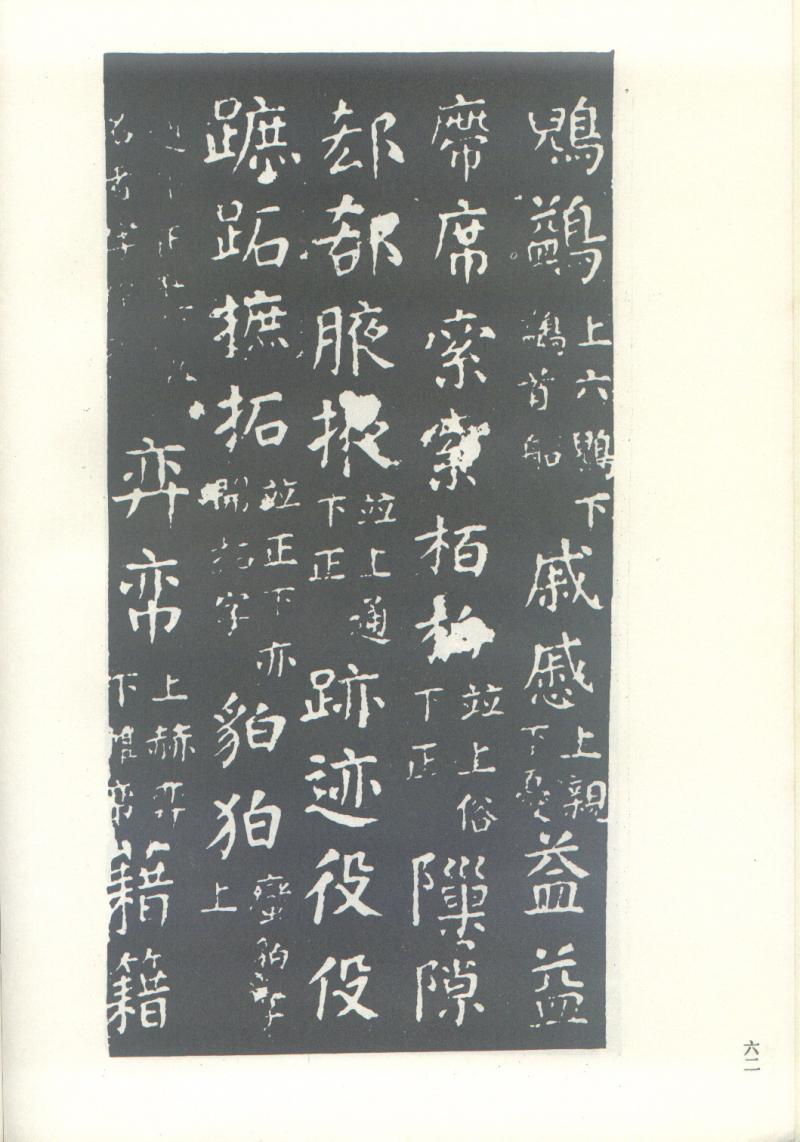 鶂鷁上六鶂下鷁首船戚慼上親下憂益益
廗席索索栢柏並上俗下正隟隙
却郤腋掖並上通下正跡迹役伇
蹠跖摭拓並正下亦開拓字貊狛蠻貊字上
弈帟上赫弈下帷帟藉籍
六二